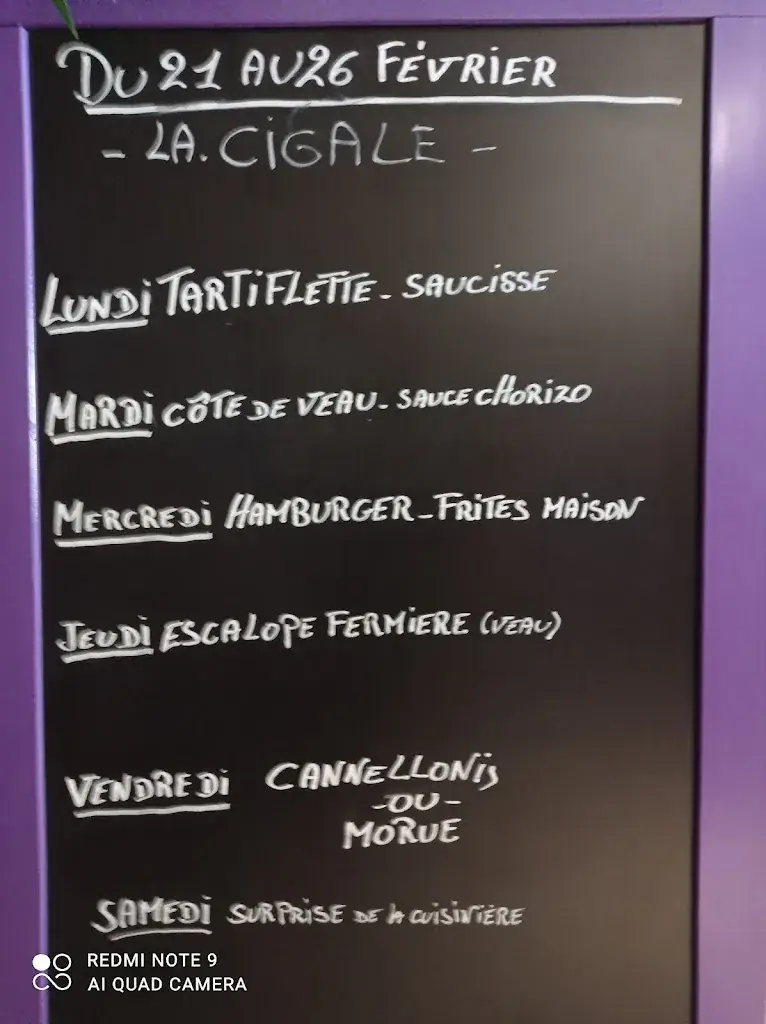 DU 21 AU 26 FÉVRIER
- LA. CIGALE -
LUNDI TARTIFLETTE - SAUCISSE
MARDI CÔTE DE VEAU - SAUCE CHORIZO
MERCREDI HAMBURGER - FRITES MAISON
JEUDI ESCALOPE FERMIERE (VEAU)
VENDREDI CANNELLONIS
- OU -
MORUE
SAMEDI SURPRISE DE LA CUISINIÈRE
REDMI NOTE 9
AI QUAD CAMERA